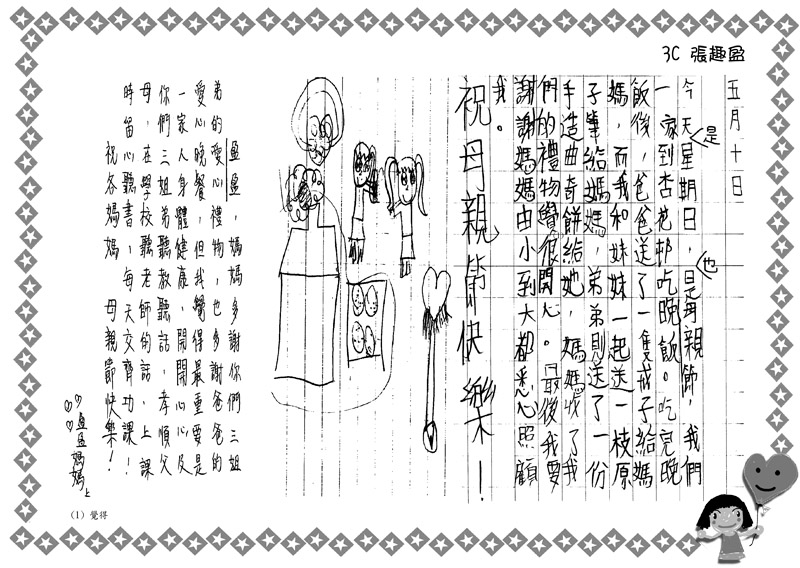 3C 張趣盈
五月十日
今天是星期日，也是母親節，我們
一家到杏花邨吃晚飯。吃完晚
飯後，爸爸送了一隻戒子給媽
媽，而我和妹妹一起送一枝原
子筆給媽媽，弟弟則送了一份
手造曲奇餅給她，媽媽收了我
們的禮物覺很開心。最後我要
謝謝媽媽由小到大都悉心照顧
我。
祝母親節快樂！
盈盈，媽媽多謝你們三姐
弟的愛心禮物，也多謝爸爸的
愛心晚餐，但我覺得最重要是
一家人身體健康，開開心心及
你們三姐弟聽教聽話，孝順父
母，在學校聽老師的話，上課
時留心聽書，每天交齊功課！
祝各媽媽　母親節快樂！
盈盈媽媽上
（1）覺得